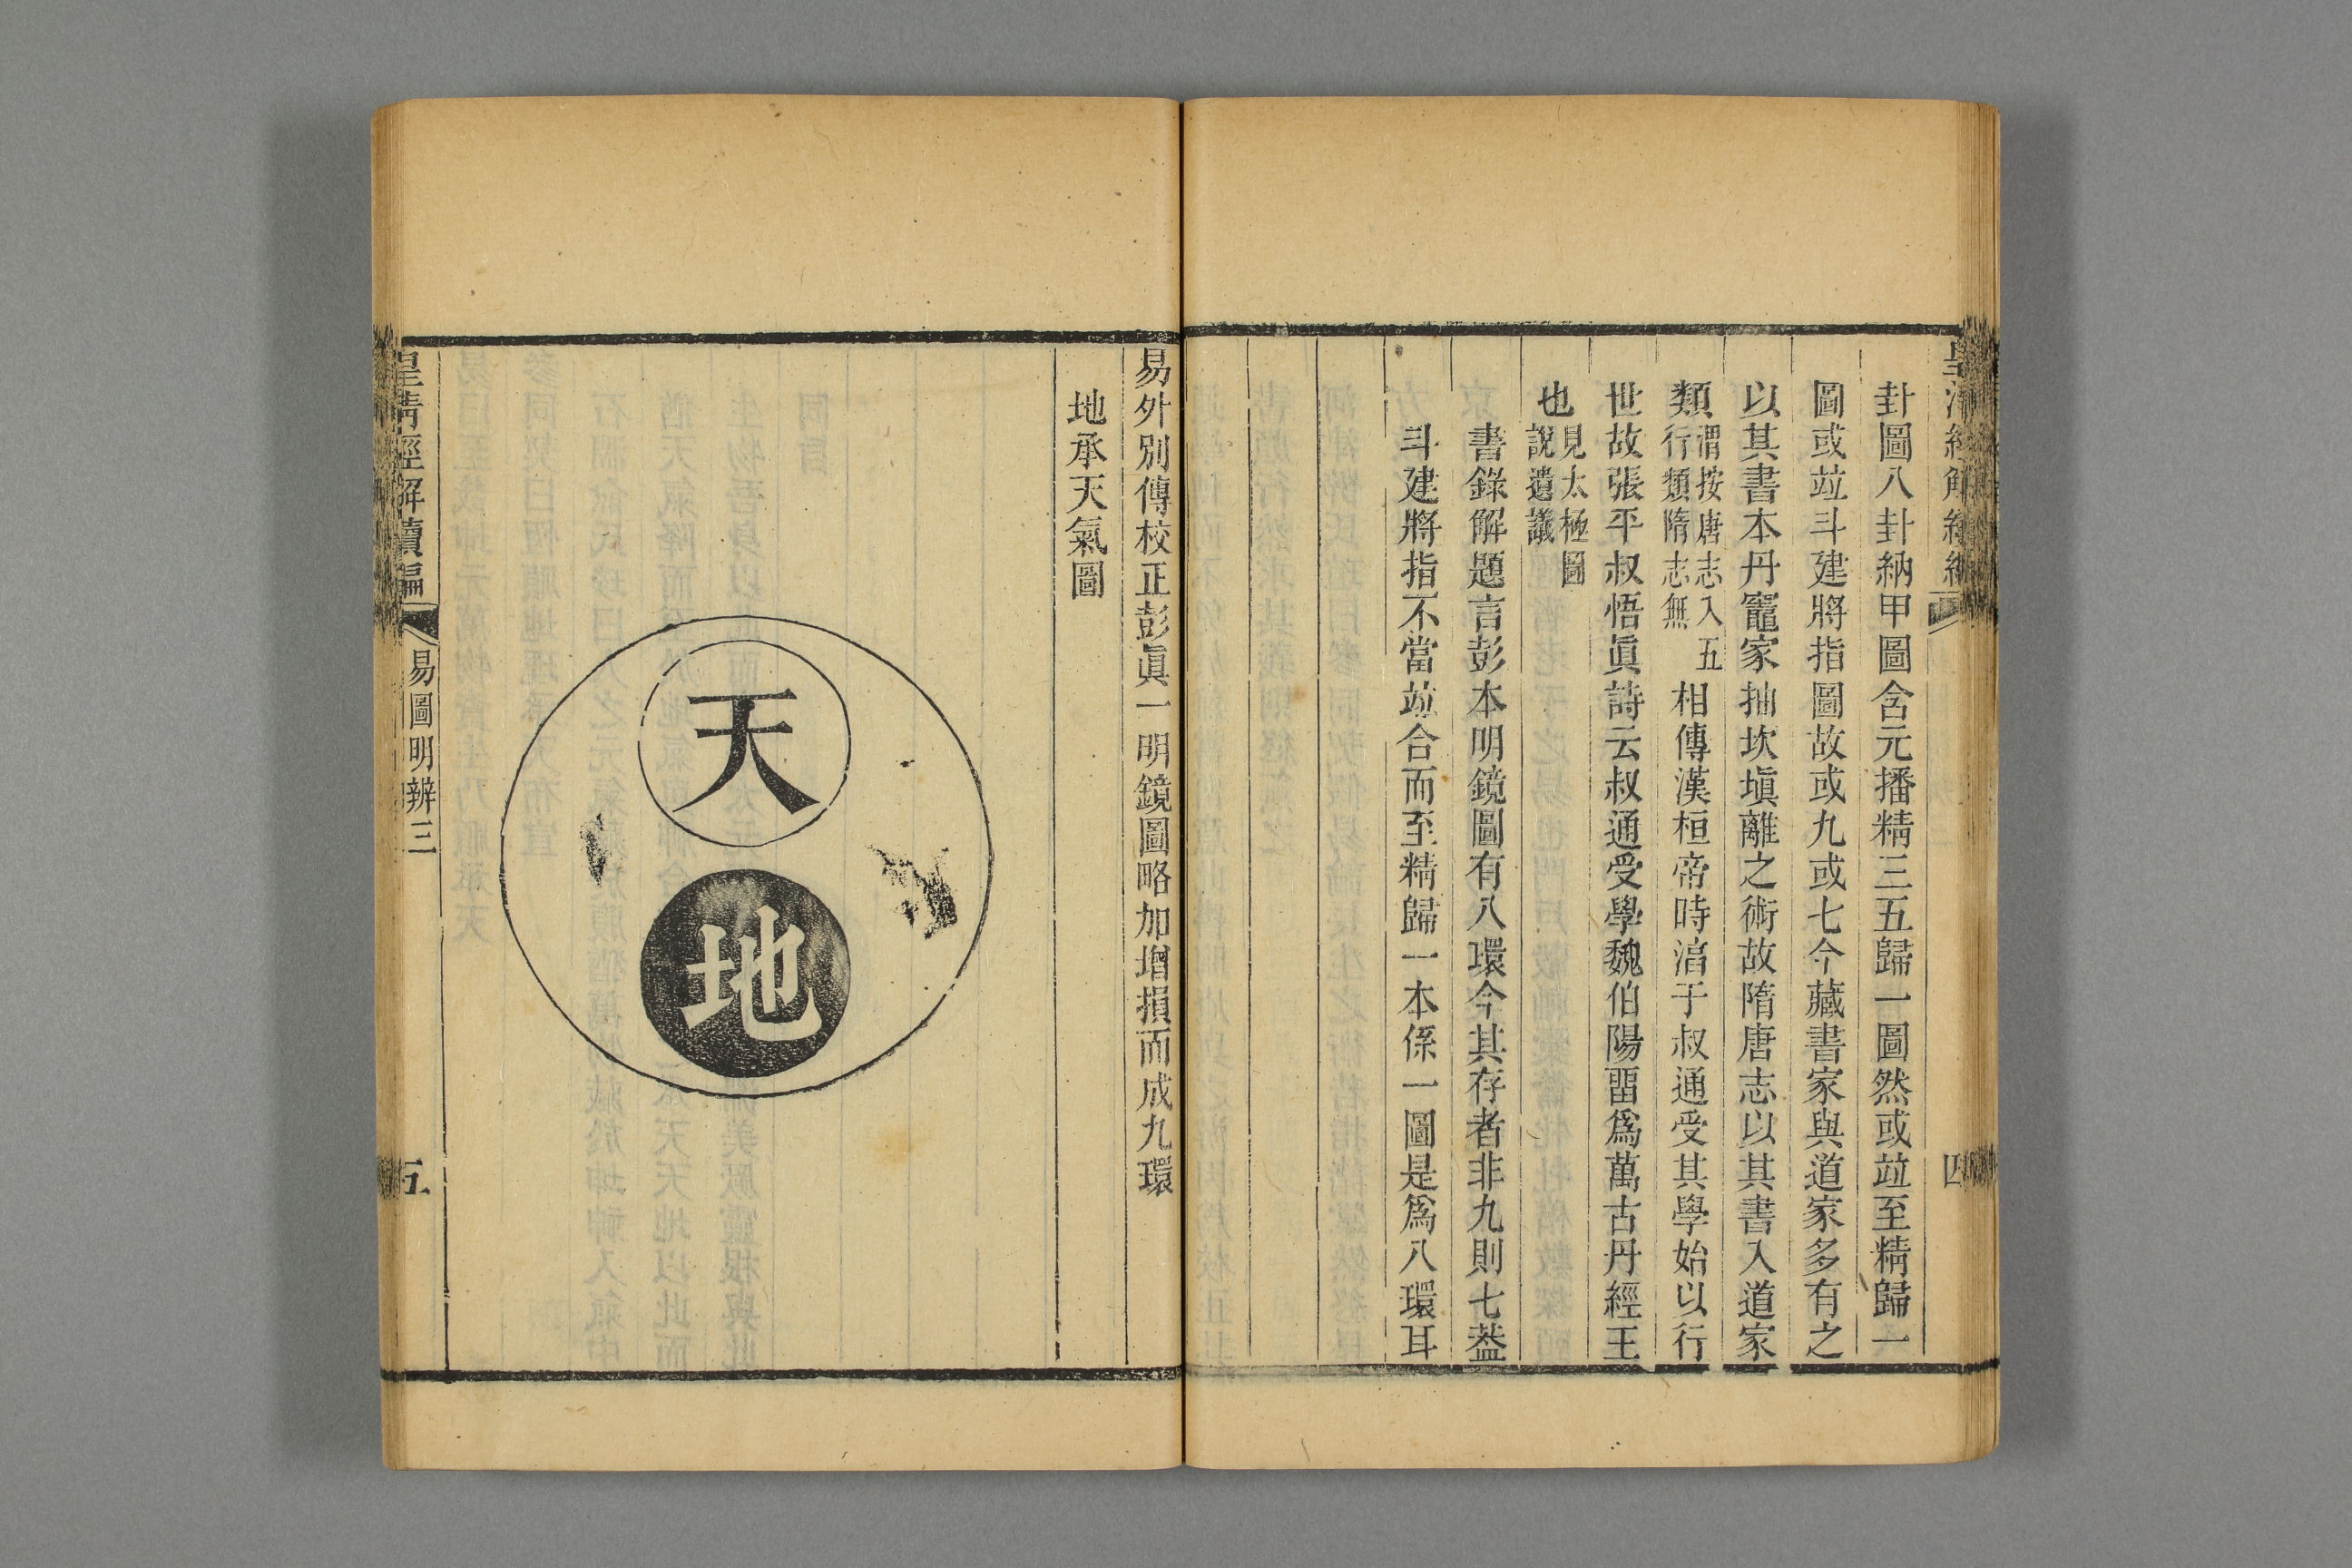 卦圖八卦納甲圖含元播精三五歸一圖然或竝至精歸一
圖或竝斗建將指圖故或九或七今藏書家與道家多有之
以其書本丹竈家抽坎塡離之術故隋唐志以其書入道家
類謂按唐志入五行類隋志無相傳漢桓帝時淳于叔通受其學始以行
世故張平叔悟眞詩云叔通受學魏伯陽畱爲萬古丹經王
也見太極圖說遺議
書錄解題言彭本明鏡圖有八環今其存者非九則七葢
斗建將指不當竝合而至精歸一本係一圖是爲八環耳
四
易外別傳校正彭眞一明鏡圖略加增損而成九環
地承天氣圖
天
地
皇淸經解續編
易圖明辨三
五